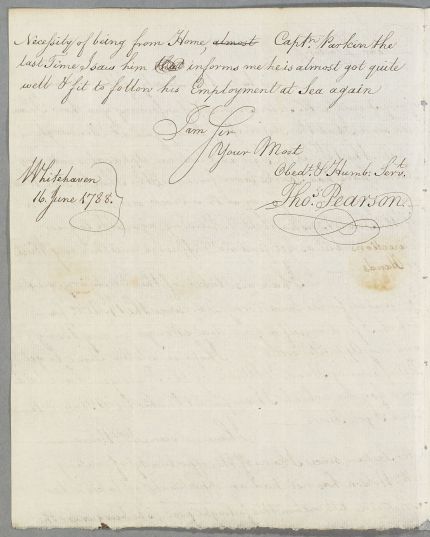 Necessity of being from Home, almost Captn. Parkin the
last Time I saw him informs me he is almost got quite
well & fit to follow his Employment at Sea again
I am Sir
Your Most
Obedt. & Humb. Servt.
Whitehaven
16 June 1788.
Thos. Pearson